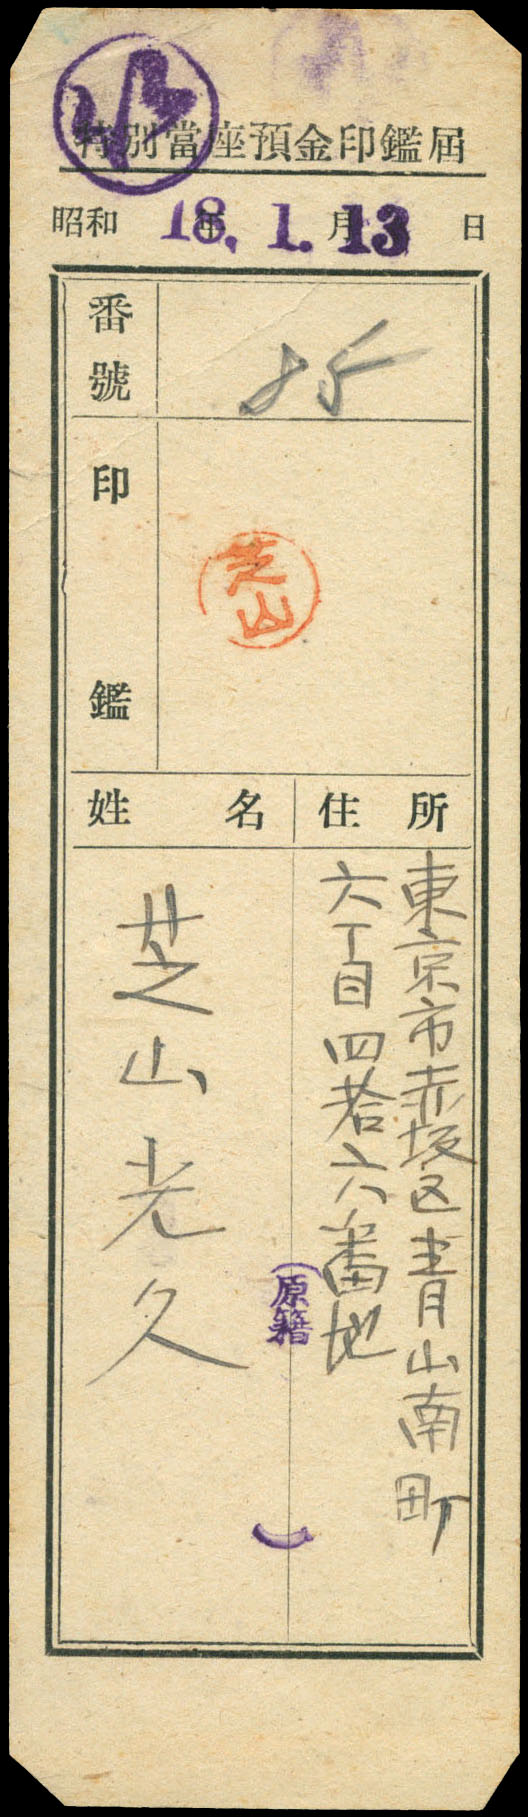 特別當座預金印鑑届
昭和 18年 1.月 13 日
番號
印鑑
芝山
姓名
住所
東京市赤坂区青山南町
六丁目四拾六番地
芝山光久
(原籍 )